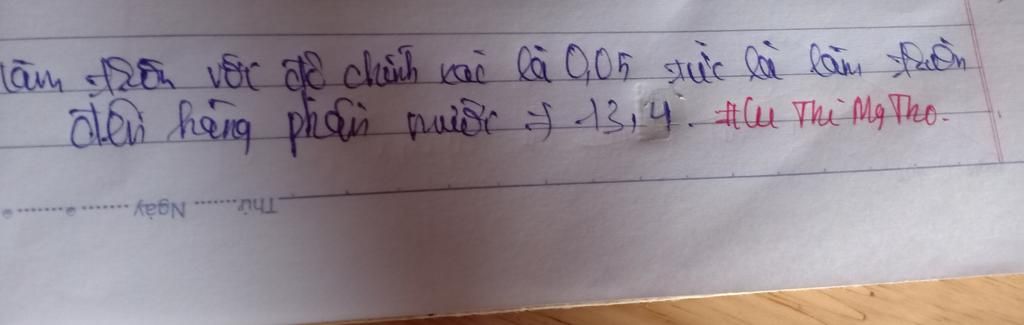 làm tròn với độ chính xác là 0,05 tức là làm tròn
đến hàng phần mười ⇒ -13,4. #Cu Thi Mg Tho.
Thứ........ Ngày ........